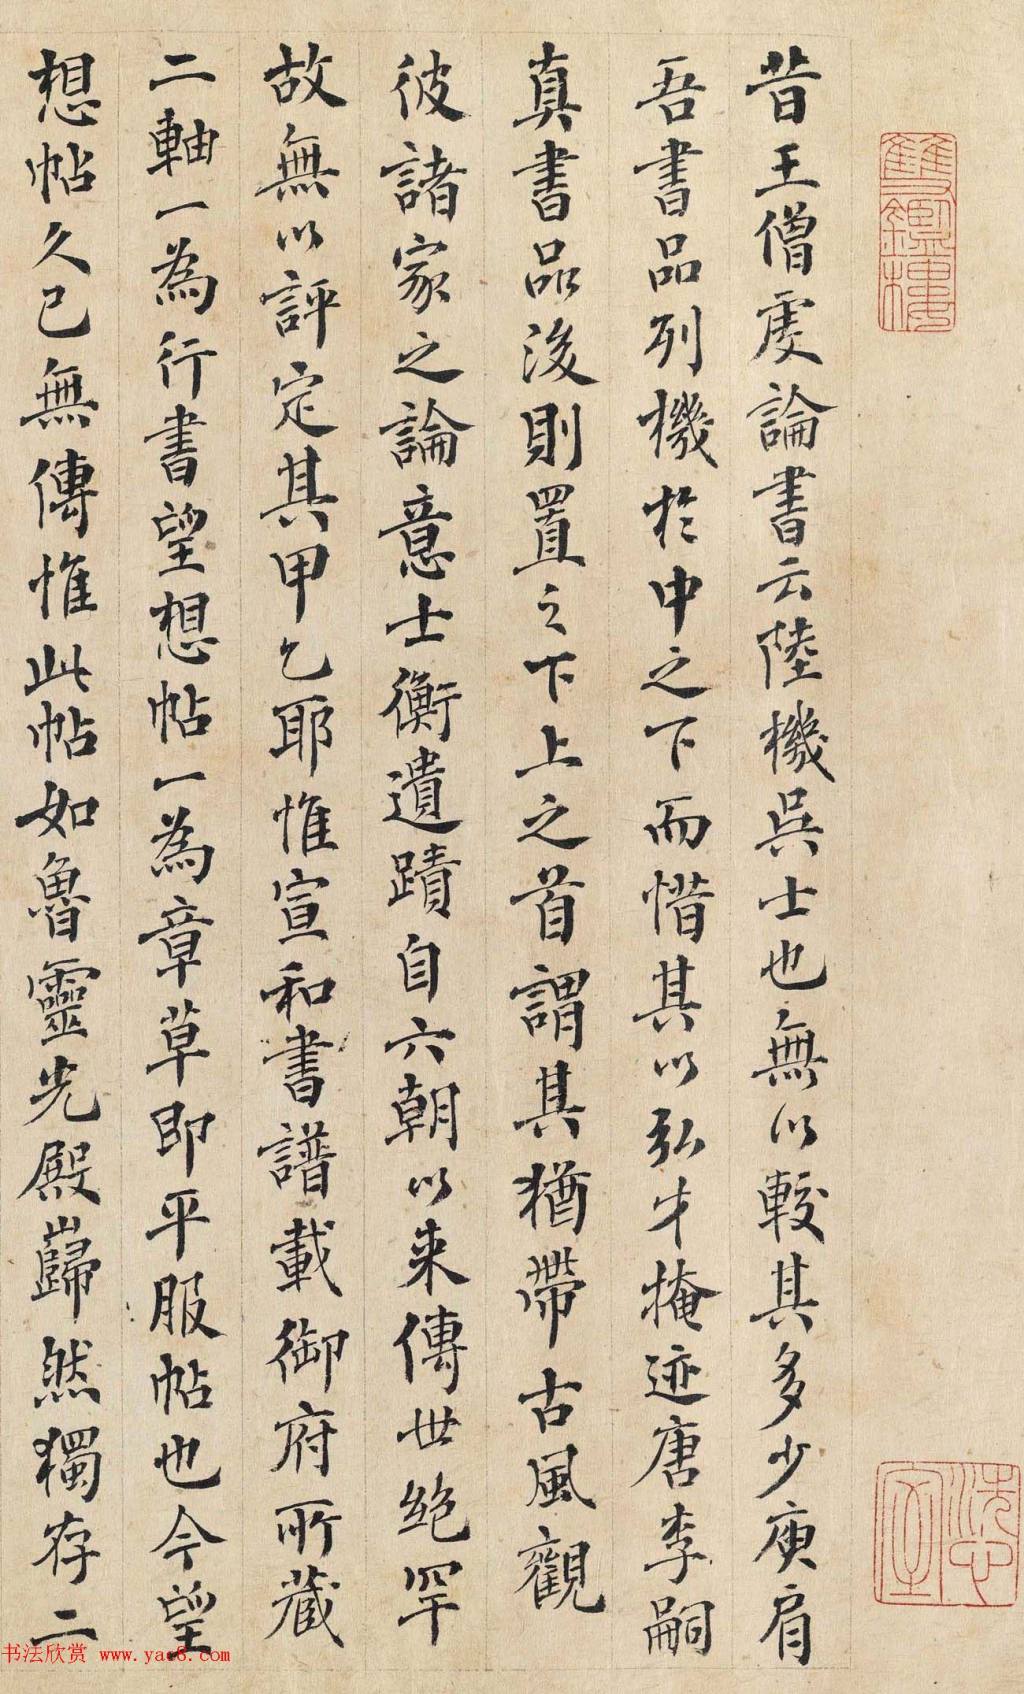 昔王僧虔論書云陸機吳士也無以較其多少庾肩
吾書品列機於中之下而惜其以弘才掩迹唐李嗣
真書品後則置之下上之首謂其猶帶古風觀
彼諸家之論意士衡遺蹟自六朝以来傳世絶罕
故無以評定其甲乙耶惟宣和書譜載御府所藏
二軸一為行書望想帖一為章草即平服帖也今望
想帖久已無傳惟此帖如魯靈光殿巋然獨存二
书法欣赏 www.yac8.com